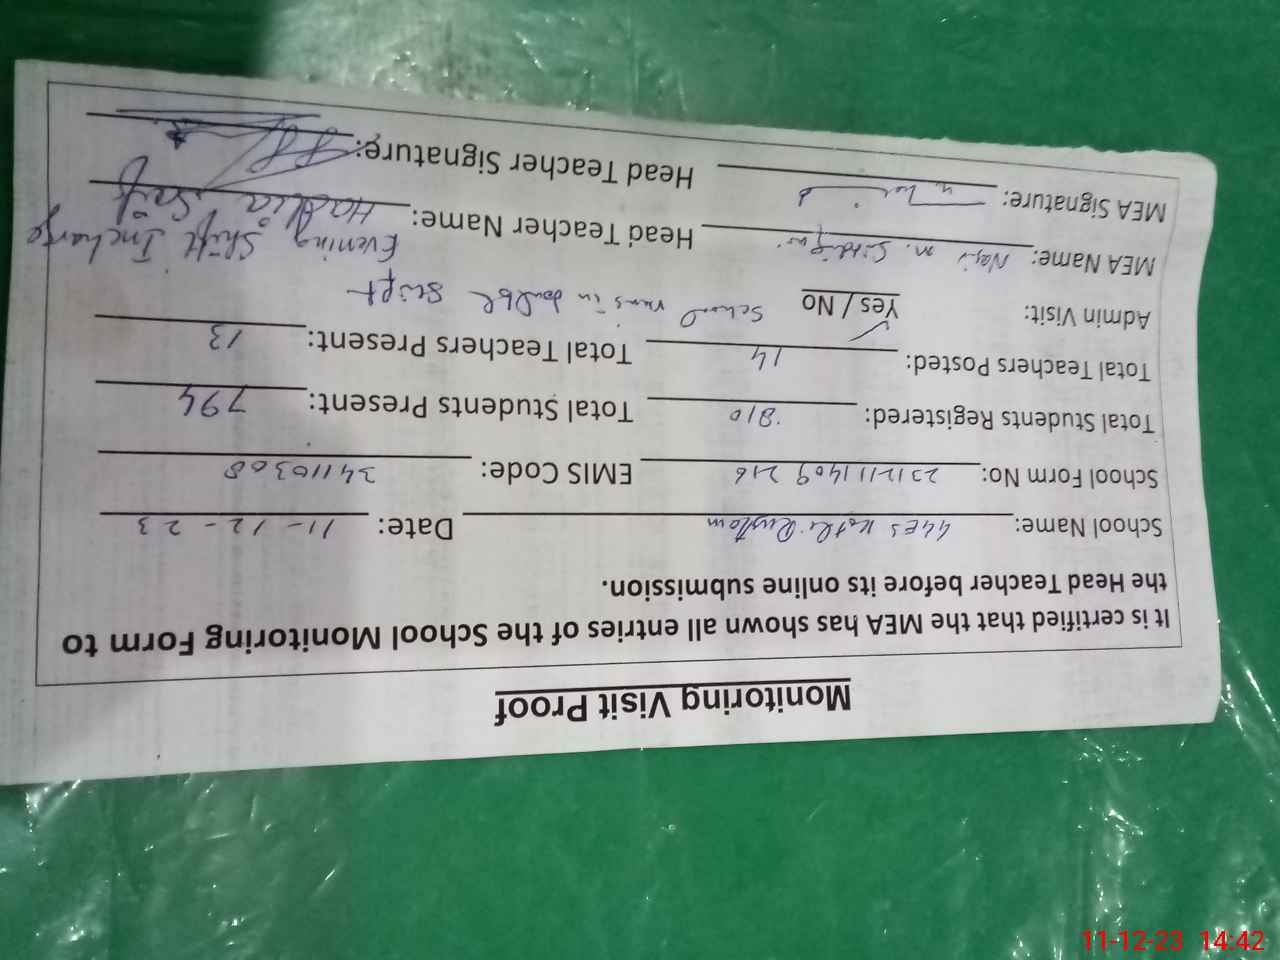 Monitoring Visit Proof
It is certified that the MEA has shown all entries of the School Monitoring Form to
the Head Teacher before its online submission.
School Name: GGES Kothi Rustam Date: 11-12-23
School Form No: 231211409216 EMIS Code: 34110308
Total Students Registered: 810 Total Students Present: 794
Total Teachers Posted: 14 Total Teachers Present: 13
Admin Visit: Yes / No School runs in double shift
Evening Shift Incharge
MEA Name: M. Head Teacher Name: Hadia Saif
MEA Signature: Head Teacher Signature:
11-12-23 14:42